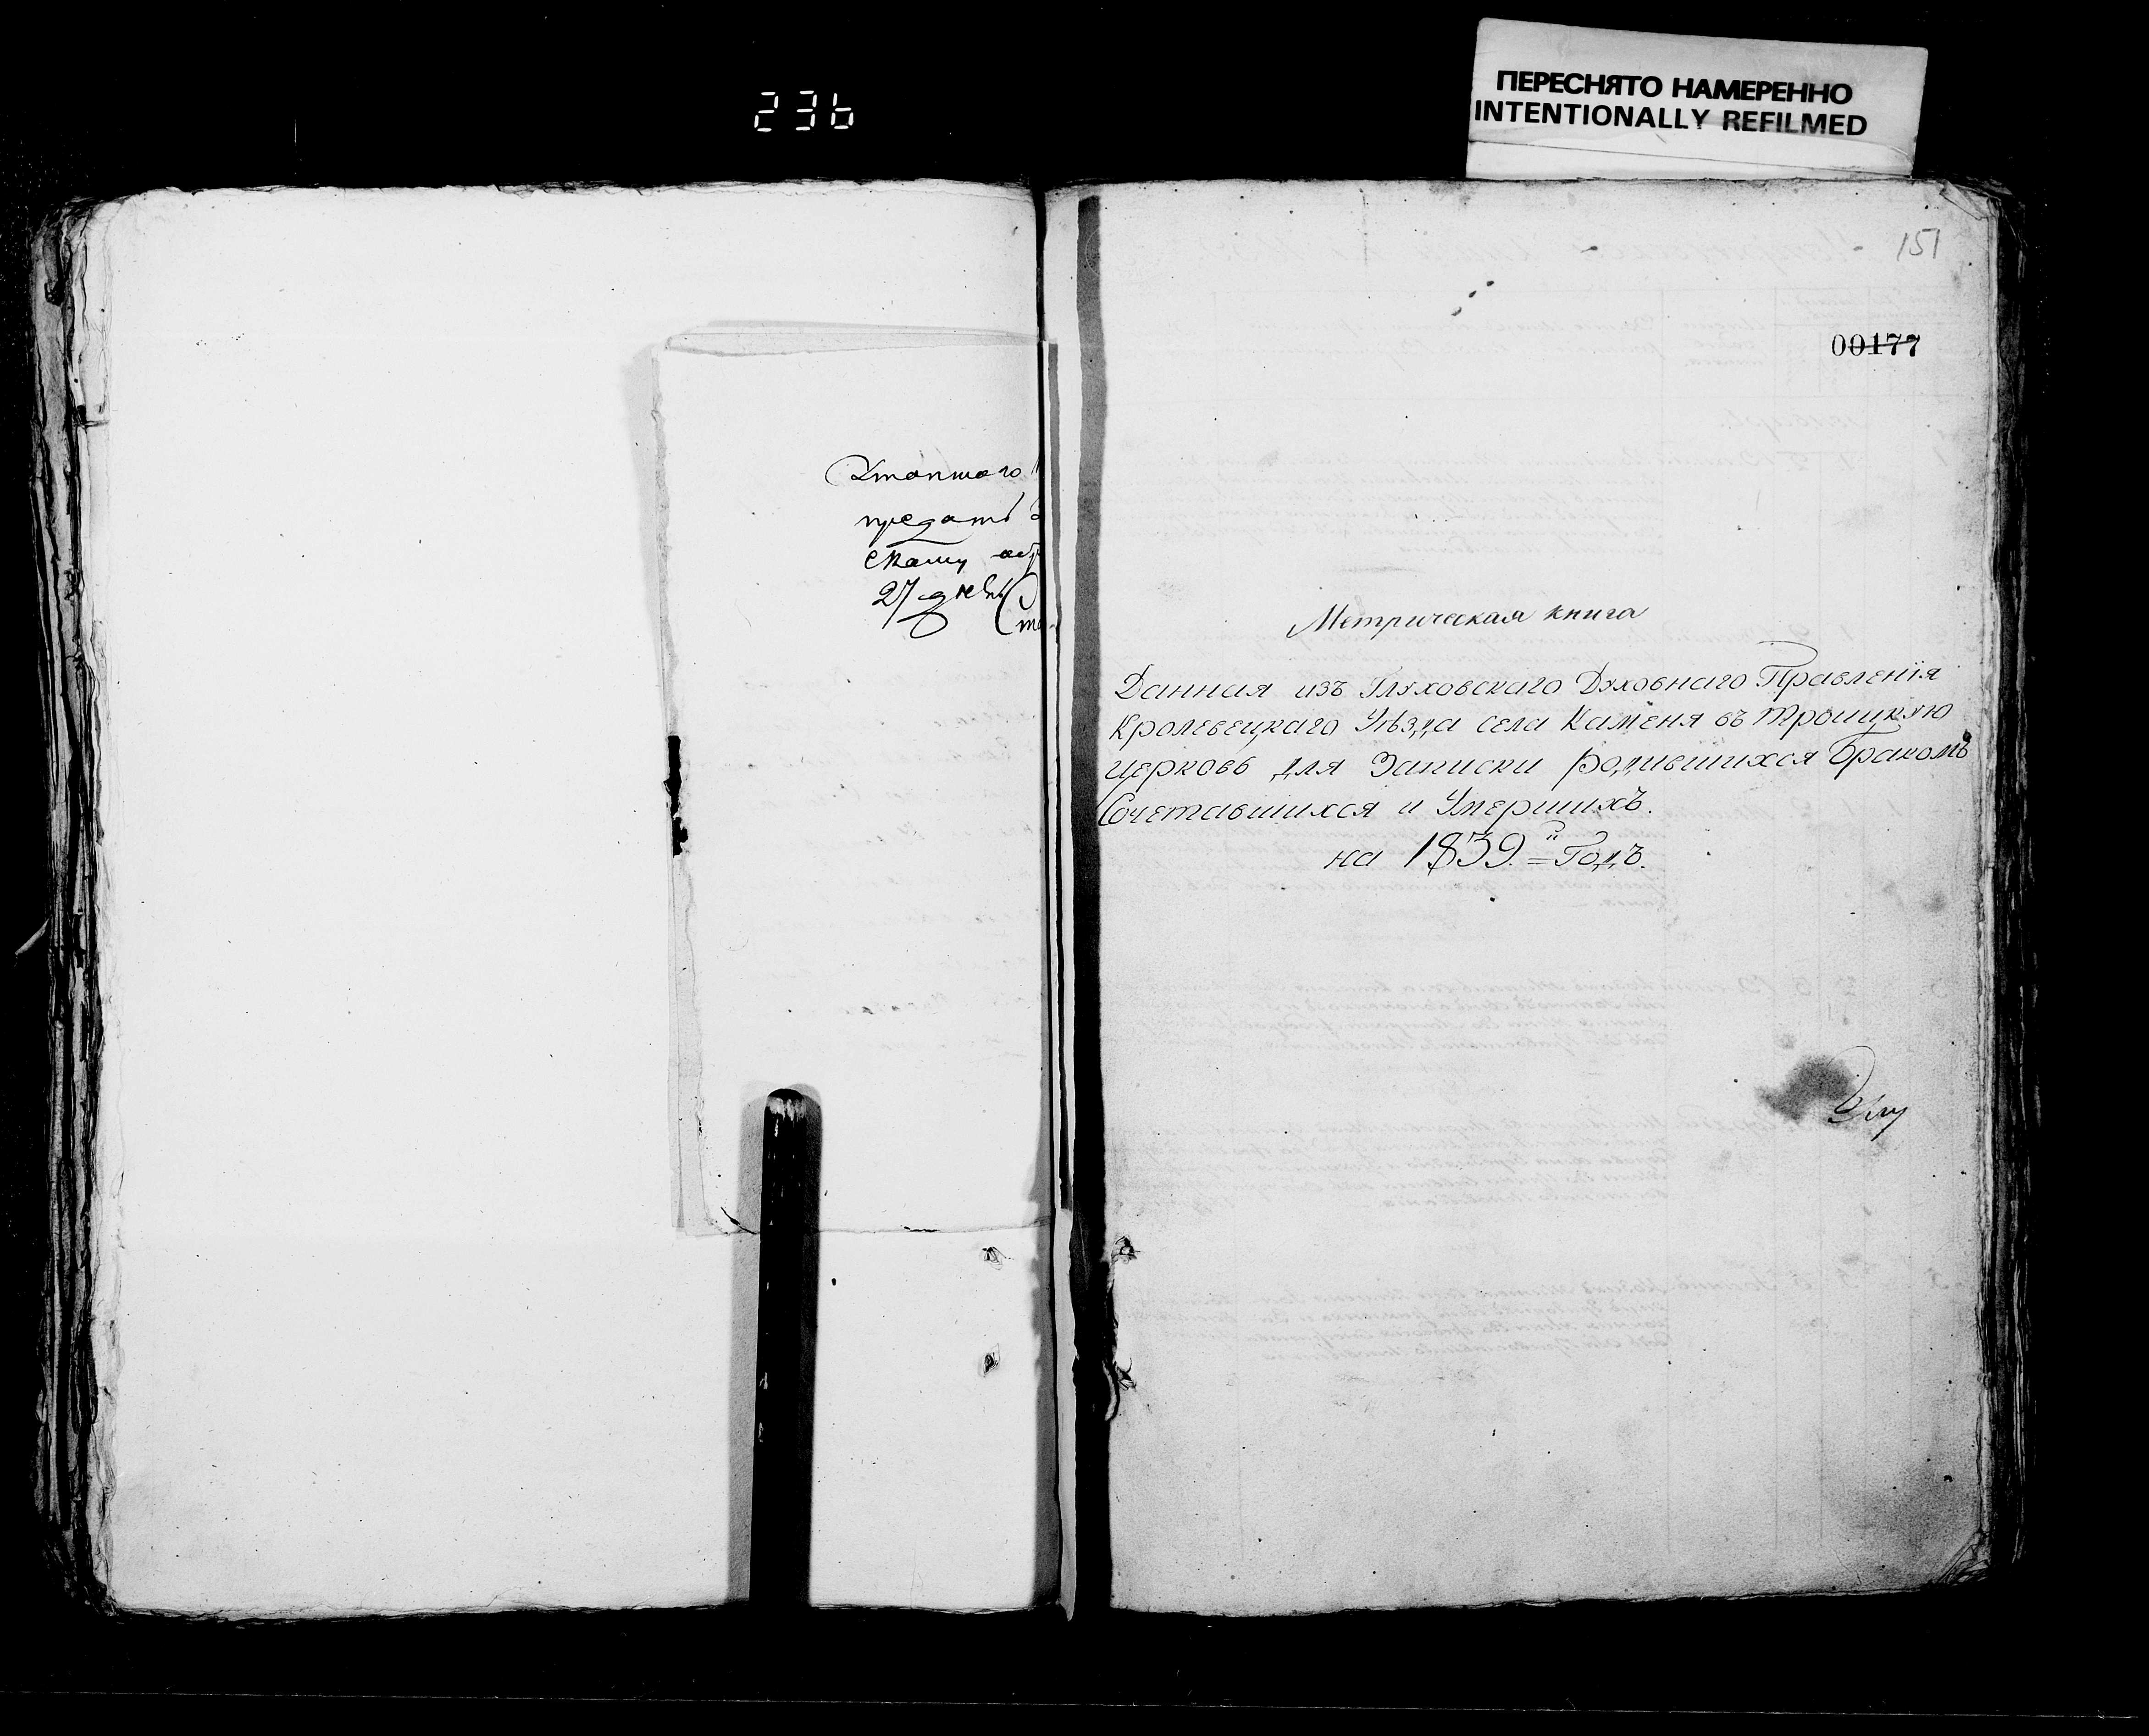 236
ПЕРЕСНЯТО НАМЕРЕННО
INTENTIONALLY REFILMED
Утопшаго
предать
скому
27 дневъ
151
00177
Метрическая книга
Данная изъ Глуховскаго Духовнаго Правленія
Кролевецкаго Уѣзда села Каменя въ Троицкую
церковь для Записки Родившихся Бракомъ
Сочетавшихся и Умершихъ.
на 1839.й = Годъ.